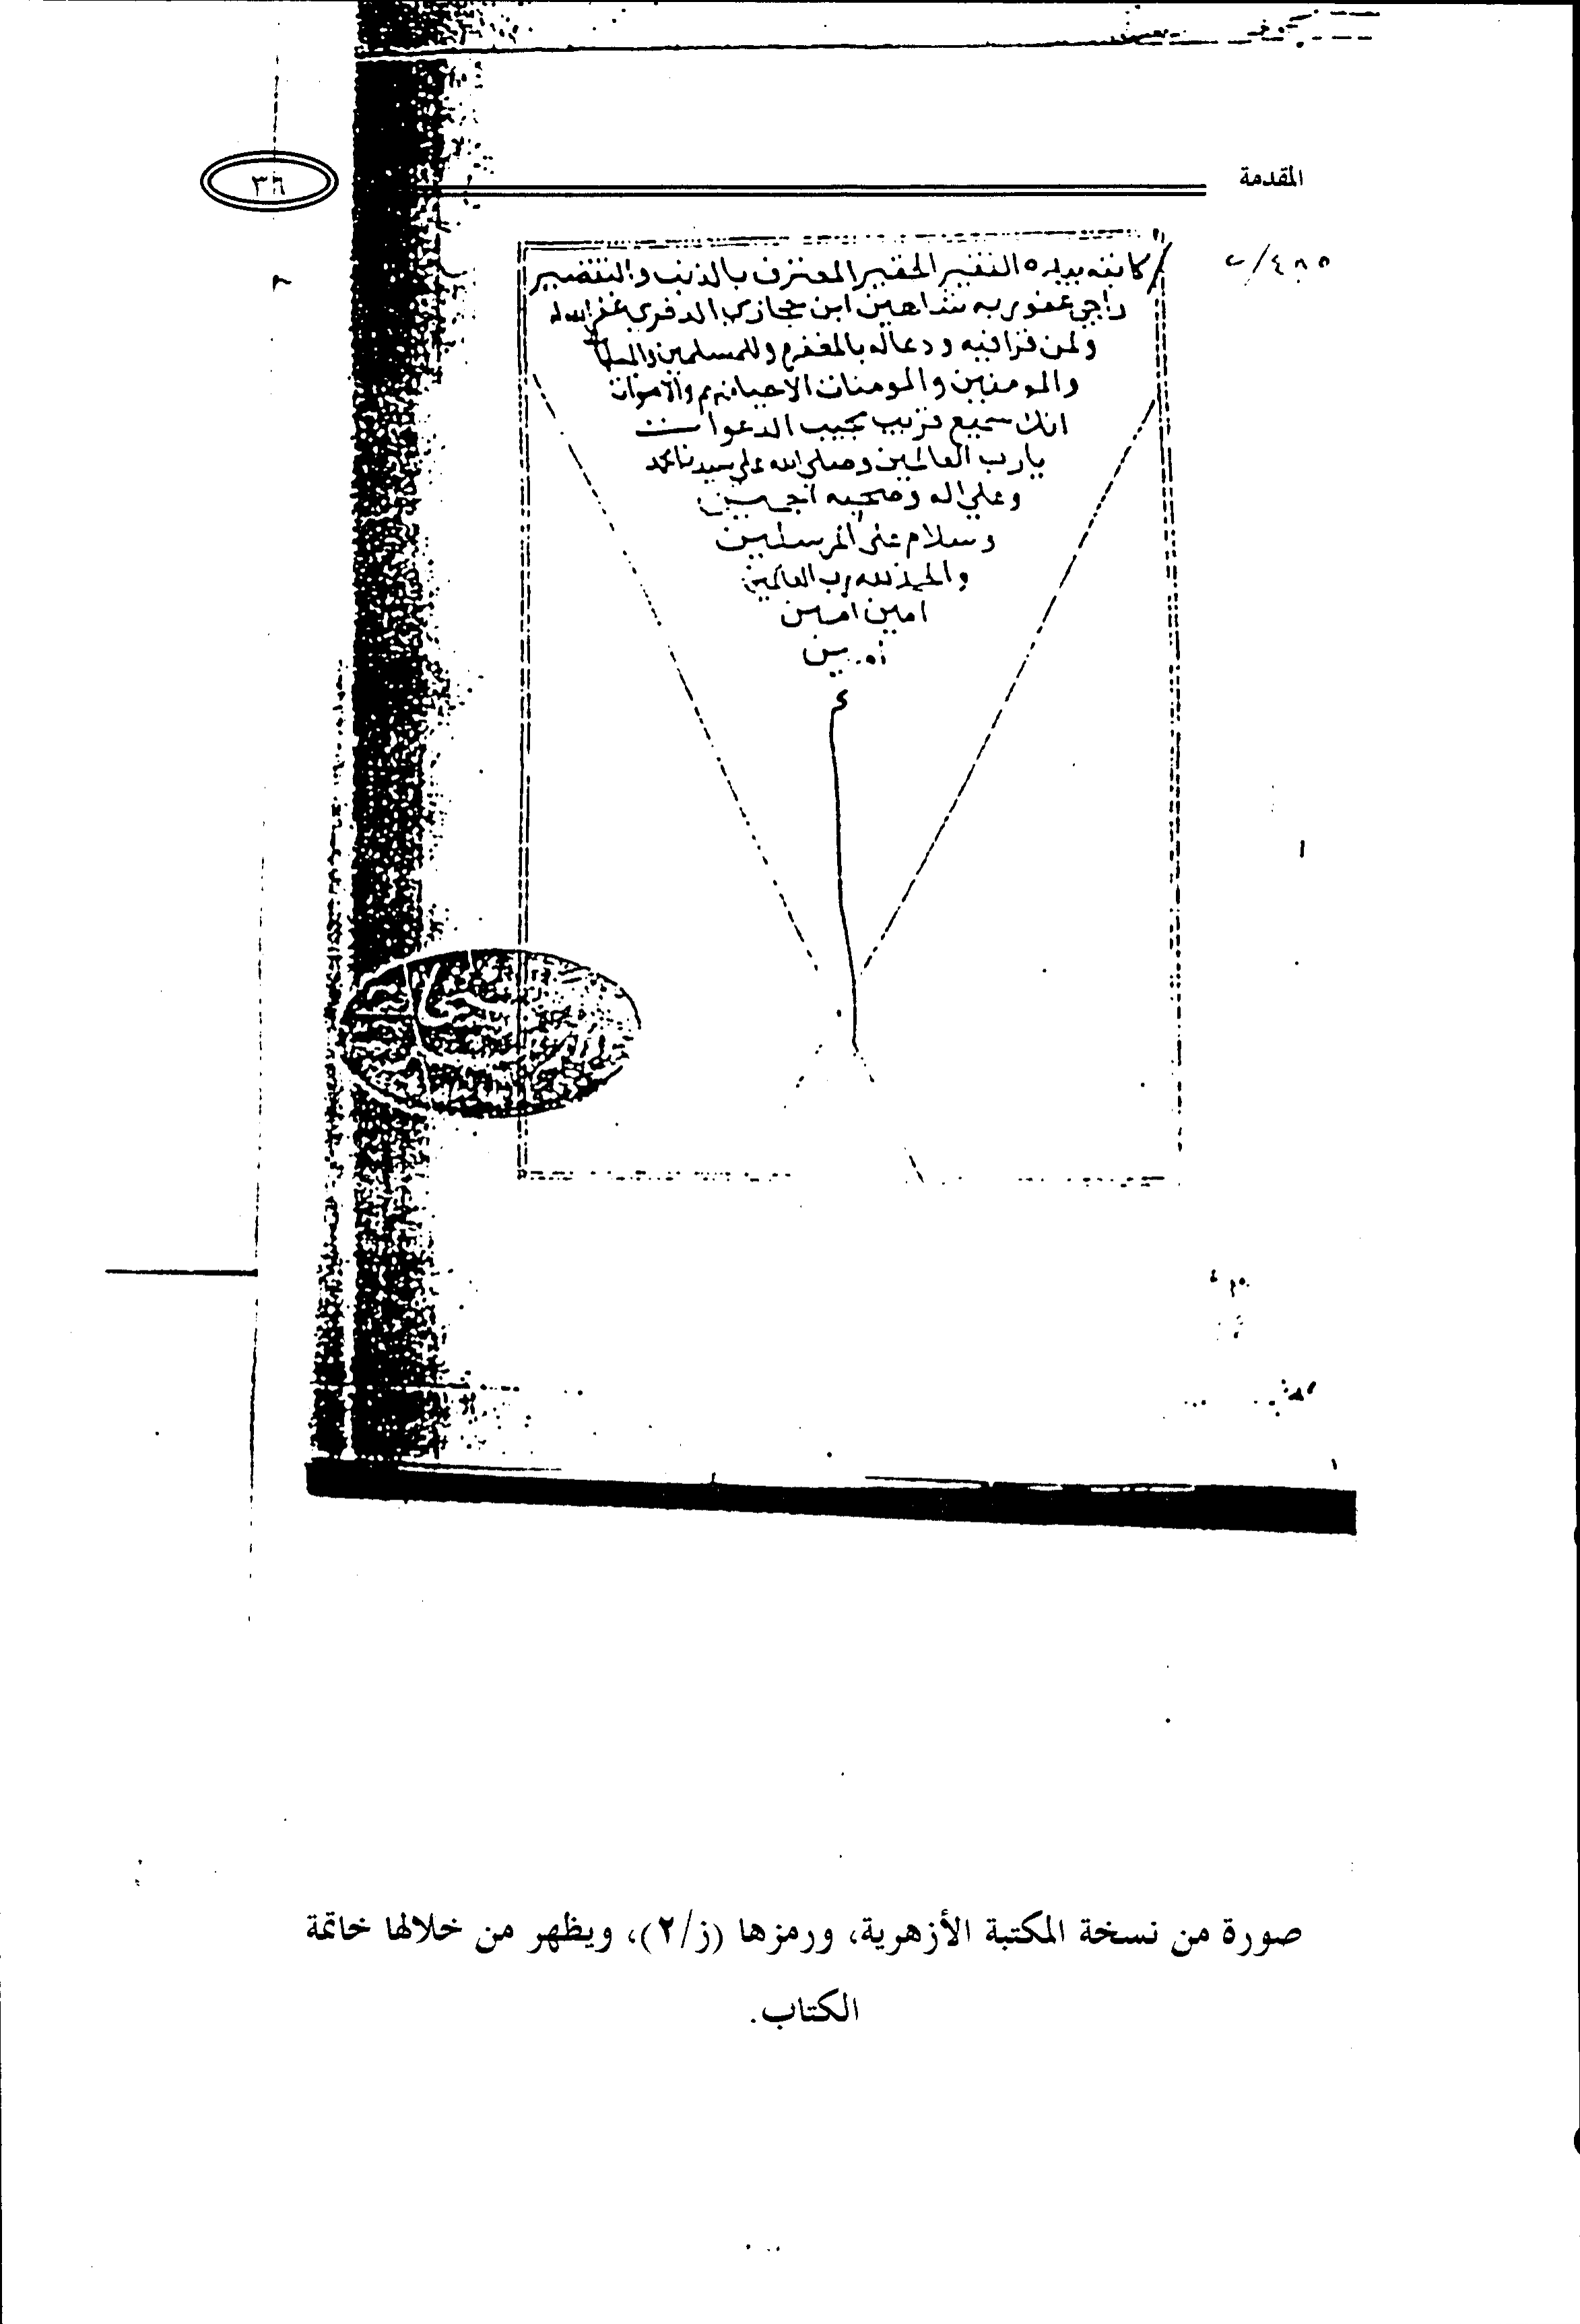 المقدمة
٣٦
كاتبه بيده الفقير الحقير المعترف بالذنب والتقصير
راجي عفو ربه شاهين ابن حجازي الدفري غفر الله له
ولمن قرا فيه ودعا له بالمغفرة وللمسلمين والمسلمات
والمومنين والمومنات الاحياء منهم والاموات
انك سميع قريب مجيب الدعوات
يا رب العالمين وصلى الله على سيدنا محمد
وعلى اله وصحبه اجمعين
وسلام على المرسلين
والحمد لله رب العالمين
امين امين
امين
م
صورة من نسخة المكتبة الأزهرية، ورمزها (ز/٢)، ويظهر من خلالها خاتمة
الكتاب.